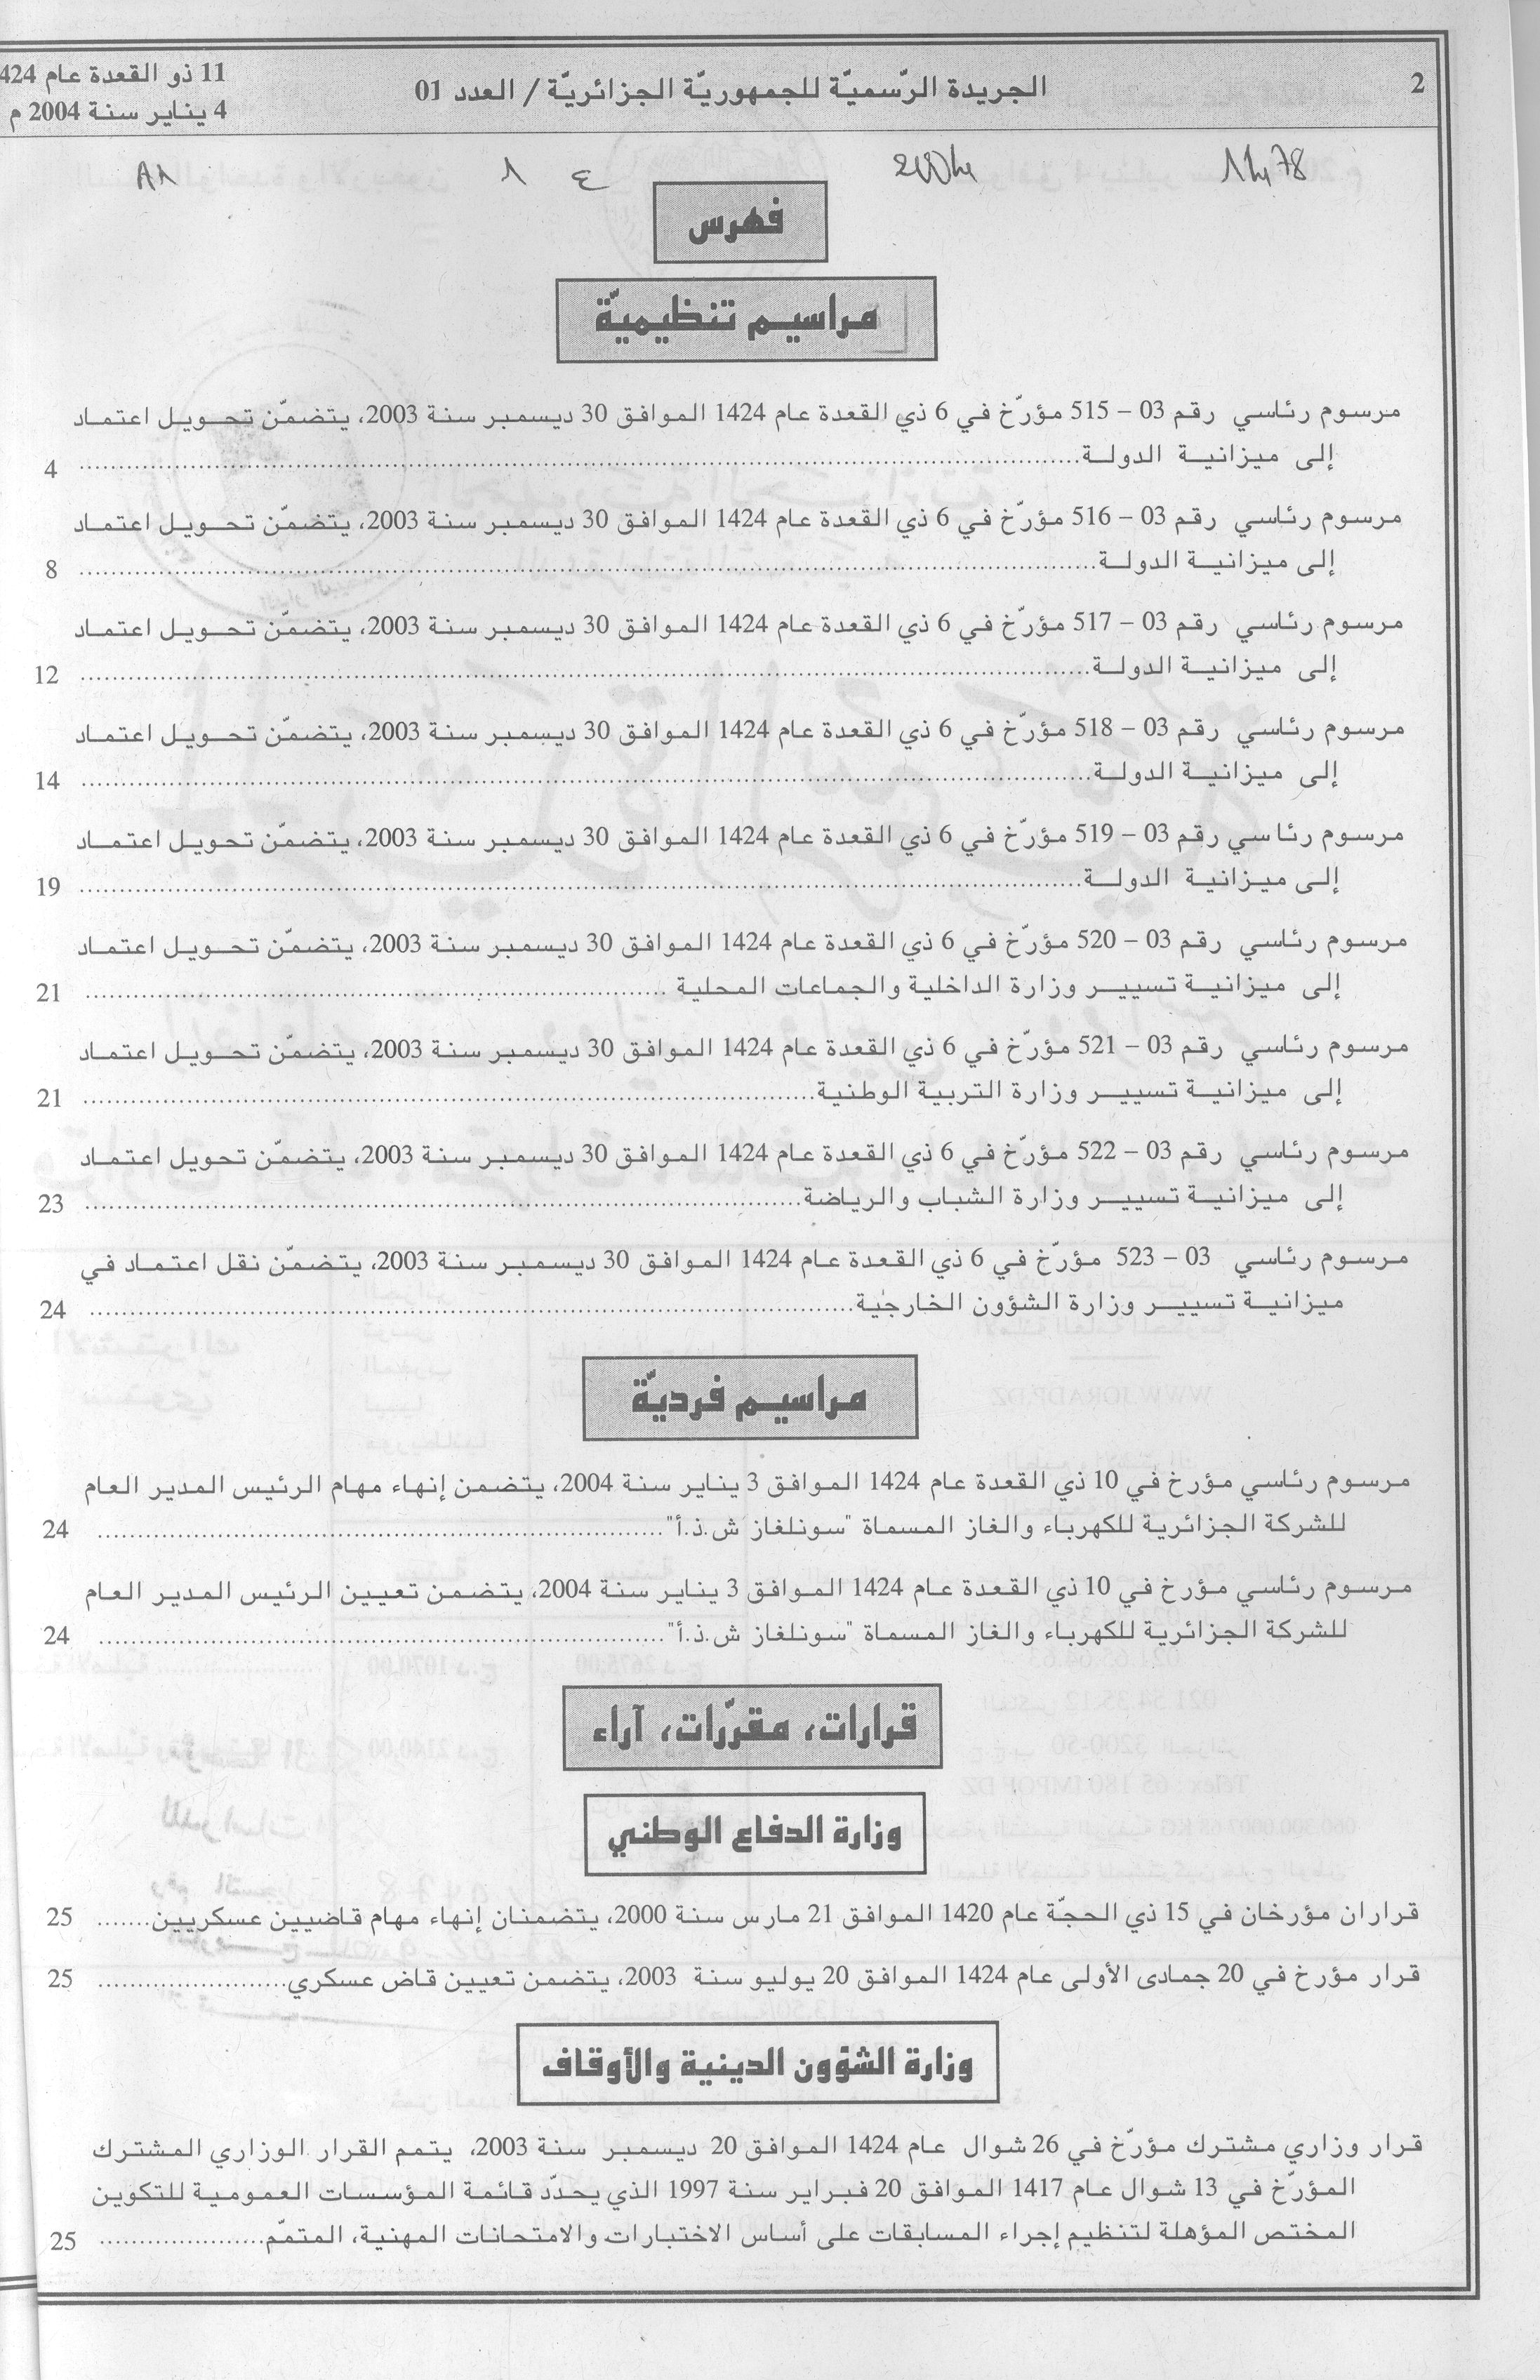 2
الجريدة الرّسميّة للجمهوريّة الجزائريّة / العدد 01
11 ذو القعدة عام 424
4 يناير سنة 2004 م
فهرس
مراسيم تنظيميّة
مرسوم رئاسي رقم 03 – 515 مؤرّخ في 6 ذي القعدة عام 1424 الموافق 30 ديسمبر سنة 2003، يتضمّن تحويل اعتماد
إلى ميزانية الدولة .......... 4
مرسوم رئاسي رقم 03 – 516 مؤرّخ في 6 ذي القعدة عام 1424 الموافق 30 ديسمبر سنة 2003، يتضمّن تحويل اعتماد
إلى ميزانية الدولة .......... 8
مرسوم رئاسي رقم 03 – 517 مؤرّخ في 6 ذي القعدة عام 1424 الموافق 30 ديسمبر سنة 2003، يتضمّن تحويل اعتماد
إلى ميزانية الدولة .......... 12
مرسوم رئاسي رقم 03 – 518 مؤرّخ في 6 ذي القعدة عام 1424 الموافق 30 ديسمبر سنة 2003، يتضمّن تحويل اعتماد
إلى ميزانية الدولة .......... 14
مرسوم رئاسي رقم 03 – 519 مؤرّخ في 6 ذي القعدة عام 1424 الموافق 30 ديسمبر سنة 2003، يتضمّن تحويل اعتماد
إلى ميزانية الدولة .......... 19
مرسوم رئاسي رقم 03 – 520 مؤرّخ في 6 ذي القعدة عام 1424 الموافق 30 ديسمبر سنة 2003، يتضمّن تحويل اعتماد
إلى ميزانية تسيير وزارة الداخلية والجماعات المحلية .......... 21
مرسوم رئاسي رقم 03 – 521 مؤرّخ في 6 ذي القعدة عام 1424 الموافق 30 ديسمبر سنة 2003، يتضمّن تحويل اعتماد
إلى ميزانية تسيير وزارة التربية الوطنية .......... 21
مرسوم رئاسي رقم 03 – 522 مؤرّخ في 6 ذي القعدة عام 1424 الموافق 30 ديسمبر سنة 2003، يتضمّن تحويل اعتماد
إلى ميزانية تسيير وزارة الشباب والرياضة .......... 23
مرسوم رئاسي 03 – 523 مؤرّخ في 6 ذي القعدة عام 1424 الموافق 30 ديسمبر سنة 2003، يتضمّن نقل اعتماد في
ميزانية تسيير وزارة الشؤون الخارجية .......... 24
مراسيم فرديّة
مرسوم رئاسي مؤرخ في 10 ذي القعدة عام 1424 الموافق 3 يناير سنة 2004، يتضمن إنهاء مهام الرئيس المدير العام
للشركة الجزائرية للكهرباء والغاز المسماة "سونلغاز ش.ذ.أ" .......... 24
مرسوم رئاسي مؤرخ في 10 ذي القعدة عام 1424 الموافق 3 يناير سنة 2004، يتضمن تعيين الرئيس المدير العام
للشركة الجزائرية للكهرباء والغاز المسماة "سونلغاز ش.ذ.أ" .......... 24
قرارات، مقرّرات، آراء
وزارة الدفاع الوطني
قراران مؤرخان في 15 ذي الحجّة عام 1420 الموافق 21 مارس سنة 2000، يتضمنان إنهاء مهام قاضيين عسكريين ....... 25
قرار مؤرخ في 20 جمادى الأولى عام 1424 الموافق 20 يوليو سنة 2003، يتضمن تعيين قاض عسكري .......... 25
وزارة الشؤون الدينية والأوقاف
قرار وزاري مشترك مؤرّخ في 26 شوال عام 1424 الموافق 20 ديسمبر سنة 2003، يتمم القرار الوزاري المشترك
المؤرّخ في 13 شوال عام 1417 الموافق 20 فبراير سنة 1997 الذي يحدّد قائمة المؤسسات العمومية للتكوين
المختص المؤهلة لتنظيم إجراء المسابقات على أساس الاختبارات والامتحانات المهنية، المتمّم .......... 25